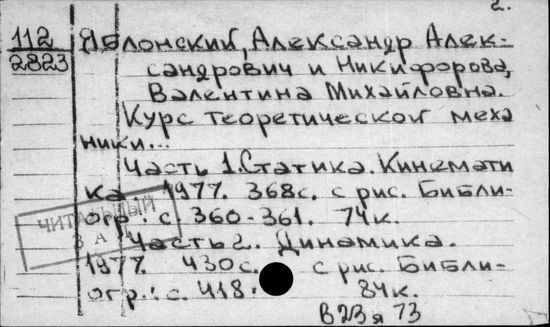 2.
112
2823
Яблонский, Александр Алек-
сандрович и Никифорова,
Валентина Михайловна.
Курс теоретической меха
ники...
Часть 1. Статика. Кинемати
ка 1977. 368с. с рис. Библи-
огр.: с. 360-361. 74к.
ЧИТАЛЬНЫЙ
ЗАЛ
Часть 2. Динамика.
1977. 430с. с рис. Библи-
огр.: с. 418. 84к.
В23я73